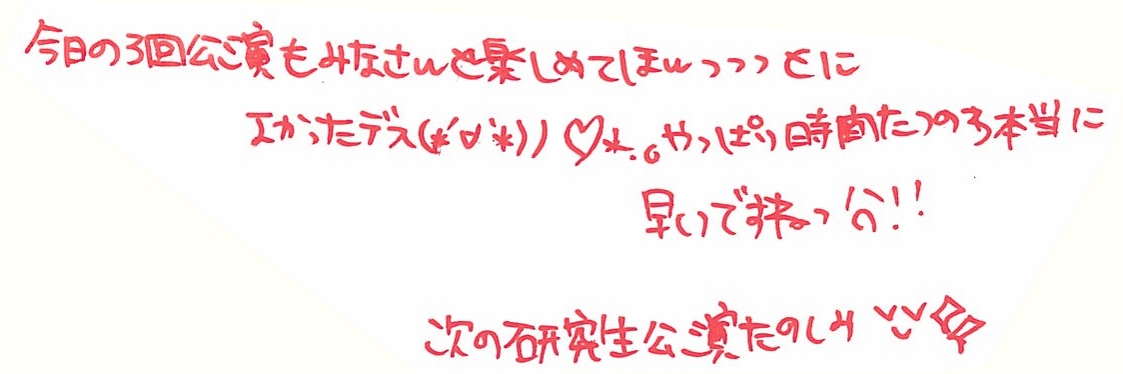 今日の3回公演もみなさんと楽しめてほんっっっとに
よかったデス(*´▽`*))♡*.。やっぱり時間たつのも本当に
早いですねっ!!
次の研究生公演たのしみ